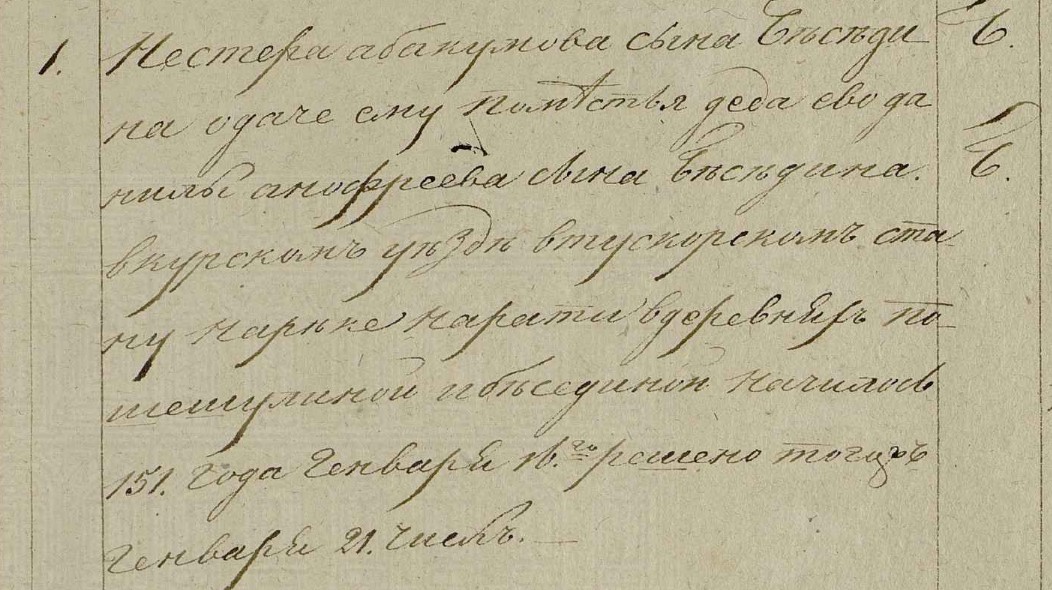 1. Нестера абакумова сына бѣсѣди б.
на одаче ему помѣстья деда ево да
нилы анофреева сына бѣсѣдина. б.
вкурскомъ уѣздѣ втускорскомъ ста
ну нарѣке нарати вдеревняхъ по
шешулиной ибѣсединой началось
151. года Генваря го решено тогожъ
Генваря 21. числъ.